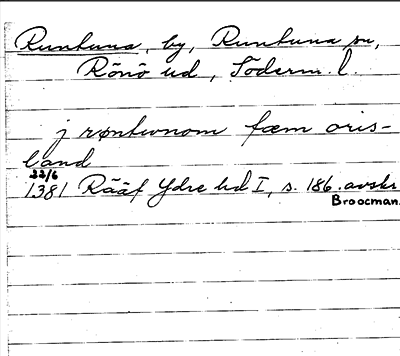 Runtuna, by, Runtuna sn,
Rönö hd, Söderm. l.
j røntwnom fæm øris-
land
22/6
1381 Rääf Ydre hd I, s. 186. avskr.
Broocman.